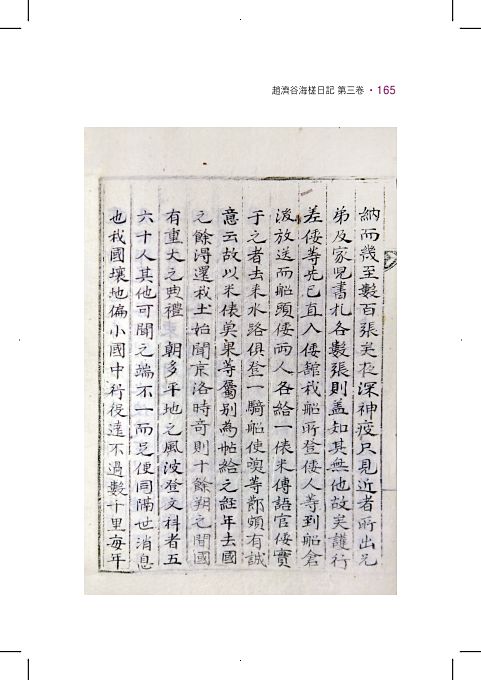 趙濟谷海槎日記 第三卷 · 165
納而幾至數百張矣夜深神疲只見近者所出兄
弟及家兒書札各數張則盖知其無他故矣護行
差倭等先已直入倭舘我船所登倭人等到船倉
後放送而船頭倭兩人各給一俵米傳語官倭實
于之者去來水路俱登一騎船使喚等節頗有誠
意云故以米俵奠果等屬別為帖給之經年去國
之餘得還我土始聞京洛時奇則十餘朔之間國
有重大之典禮 朝多平地之風波登文科者五
六十人其他可聞之端不一而足便同隔世消息
也我國壤地偏小國中行役遠不過數千里每年